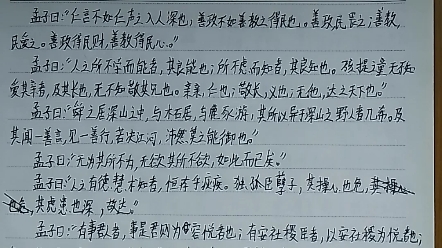 孟子曰："仁言不如仁声之入人深也，善政不如善教之得民也。善政民畏之；善教，
民爱之。善政得民财，善教得民心。"
孟子曰："人之所不学而能者，其良能也；所不虑而知者，其良知也。孩提之童无不知
爱其亲者，及其长也，无不知敬其兄也。亲亲，仁也；敬长，义也；无他，达之天下也。"
孟子曰："舜之居深山之中，与木石居，与鹿豕游，其所以异于深山之野人者几希。及
其闻一善言，见一善行，若决江河，沛然莫之能御也。"
孟子曰："无为其所不为，无欲其所不欲，如此而已矣。"
孟子曰："人之有德慧术知者，恒存乎疢疾。独孤臣孽子，其操心也危，
其虑患也深，故达。"
孟子曰："有事君人者，事是君则为容悦者也；有安社稷臣者，以安社稷为悦者也；